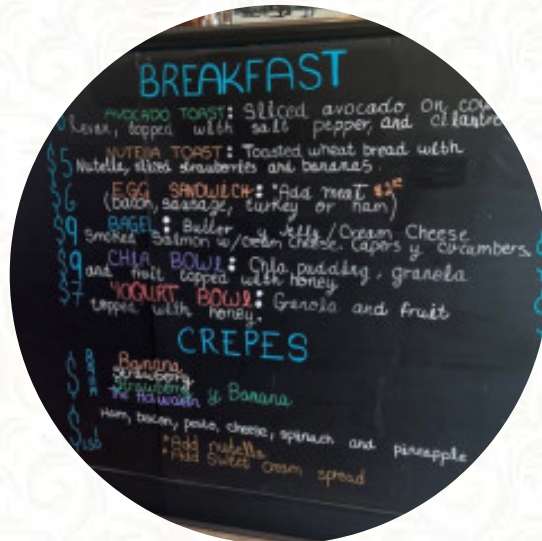 BREAKFAST
AVOCADO TOAST: Sliced avocado on
topped with salt pepper, and cilantro
$5 NUTELLA TOAST: Toasted wheat bread with
Nutella, sliced strawberries and bananas.
$6 EGG SANDWICH: *Add meat $2
(bacon, sausage, turkey or ham)
$9 BAGEL: Butter y Jelly/Cream Cheese
Smoked Salmon w/cream cheese, capers y cucumbers.
$9 CHIA BOWL: Chia pudding, granola
and fruit topped with honey
$7 YOGURT BOWL: Granola and fruit
topped with honey.
CREPES
$ Banana
Strawberry
Strawberry y Banana
The Hawaiian
Ham, bacon, pesto, cheese, spinach and pineapple
*Add nutella
*Add sweet cream spread